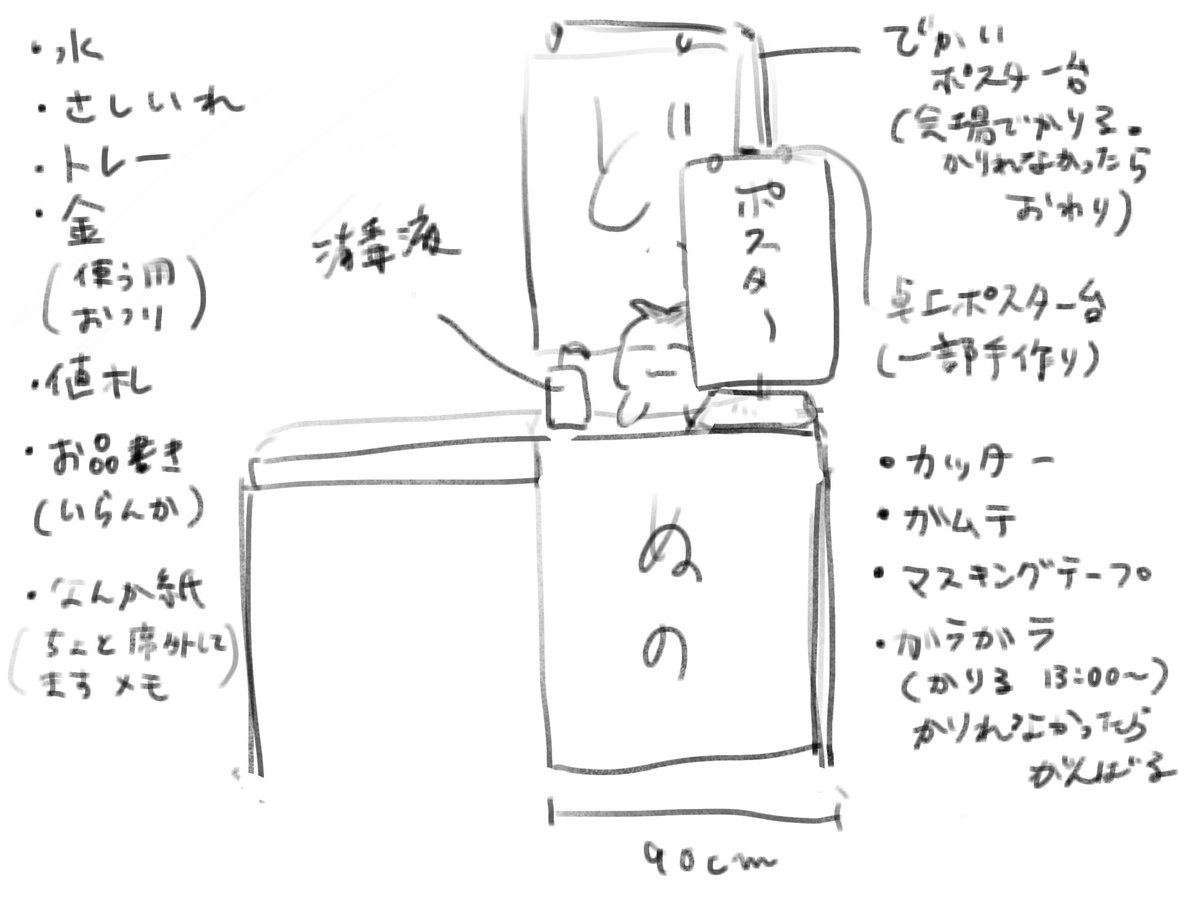 ・水
・さしいれ
・トレー
・金
(使う用
おつり)
・値札
・お品書き
(いらんか)
・なんか紙
(ちょと席外して
ますメモ)
消毒液
ポスター
ぬの
90cm
でかい
ポスター台
(会場でかりる。
かりれなかったら
おわり)
卓上ポスター台
(一部手作り)
・カッター
・ガムテ
・マスキングテープ
・ガラガラ
(かりる 13:00〜)
かりれなかったら
がんばる